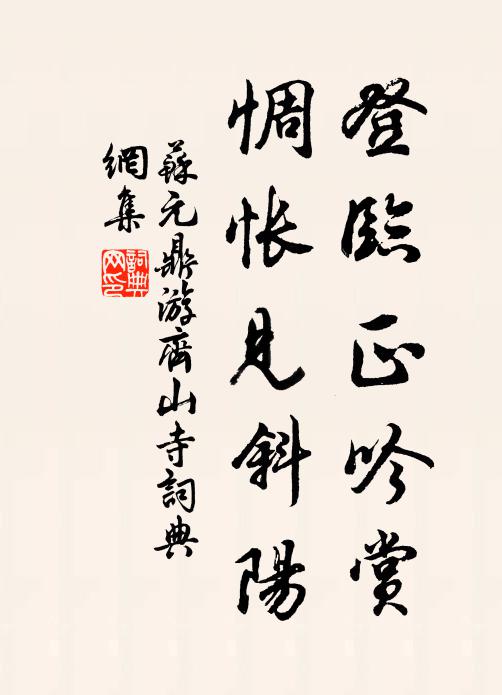 登臨正吟賞
惆悵見斜陽
蘇元鼎游齊山寺詞典
網集
詞典網印